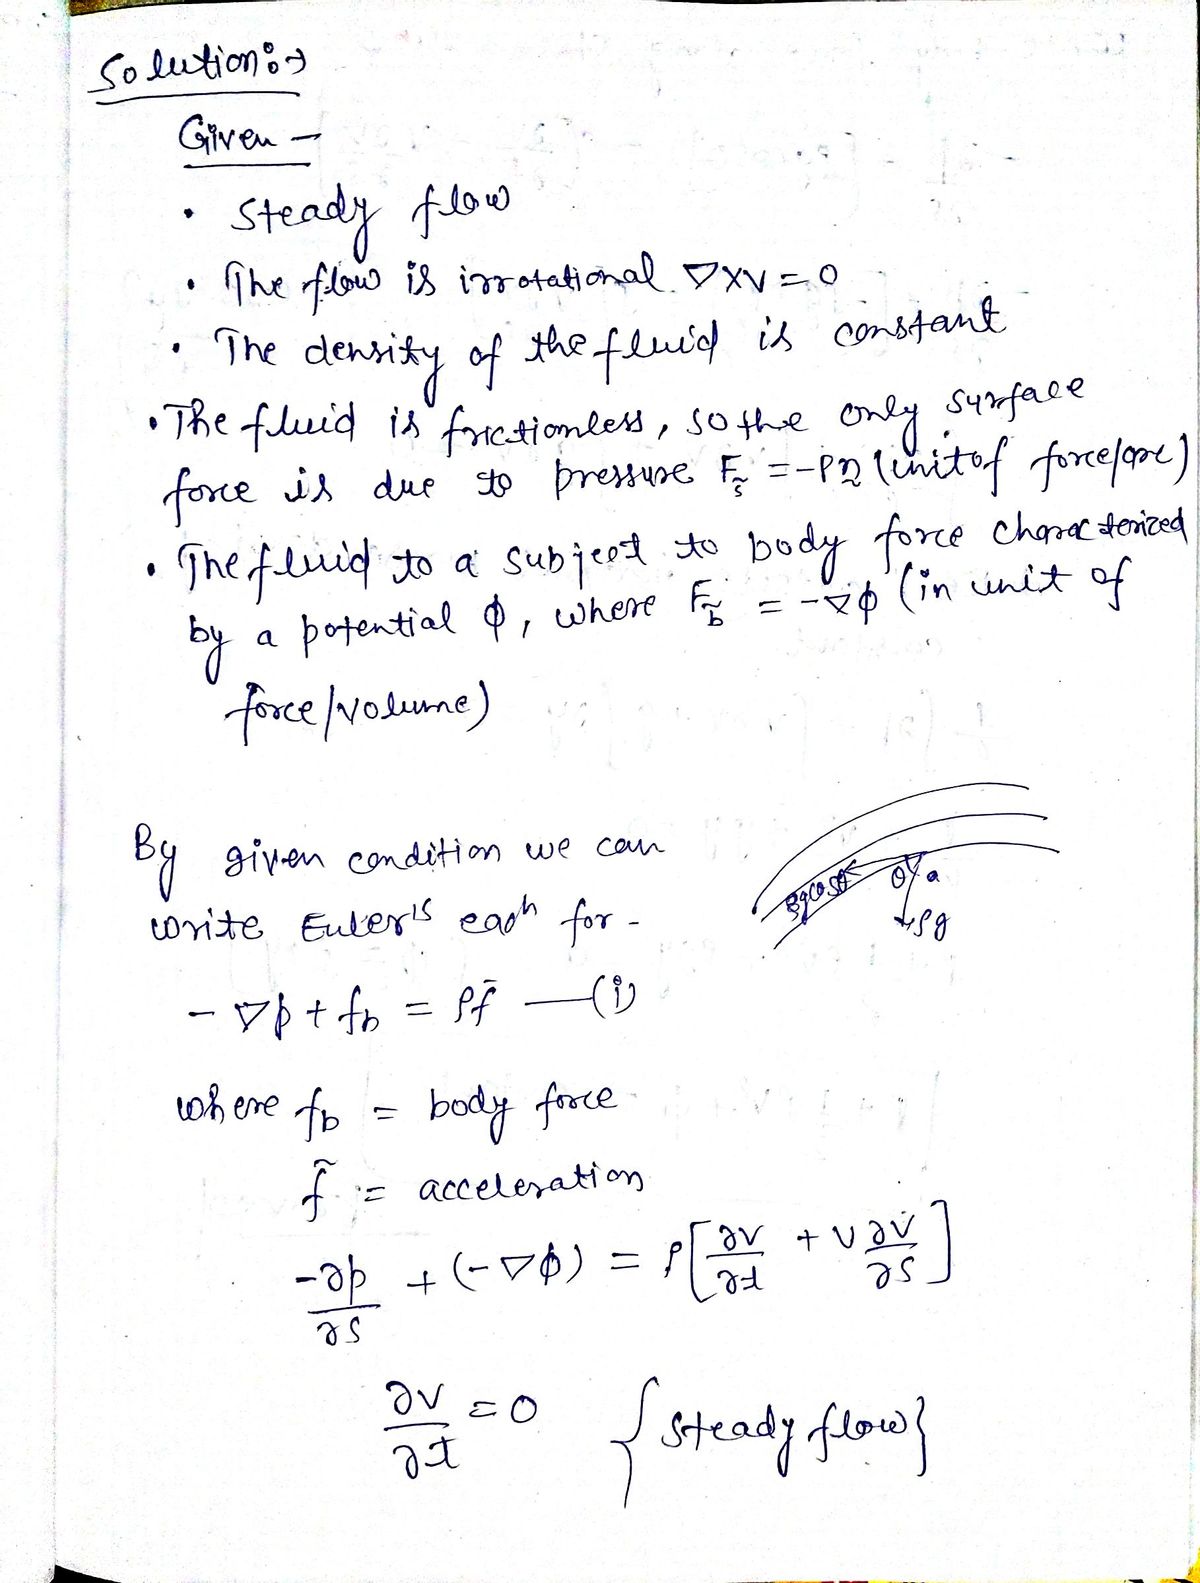 Solution:→
Given –
• Steady flow
• The flow is irrotational ∇XV = 0
• The density of the fluid is constant
• The fluid is frictionless, so the only surface
force is due to pressure F̰s = -Pn̰ (unit of force/are)
• The fluid to a subject to body force characterized
by a potential ϕ, where F̰b = -∇ϕ (in unit of
force/volume)
By given condition we can
write Euler's for -
θ a
ρg
- ∇p + fb = ρf̄ —(i)
where fb = body force
f̃ = acceleration
-∂p/∂s + (-∇ϕ) = ρ[∂v/∂t + v ∂v/∂s]
∂v/∂t = 0 {steady flow}